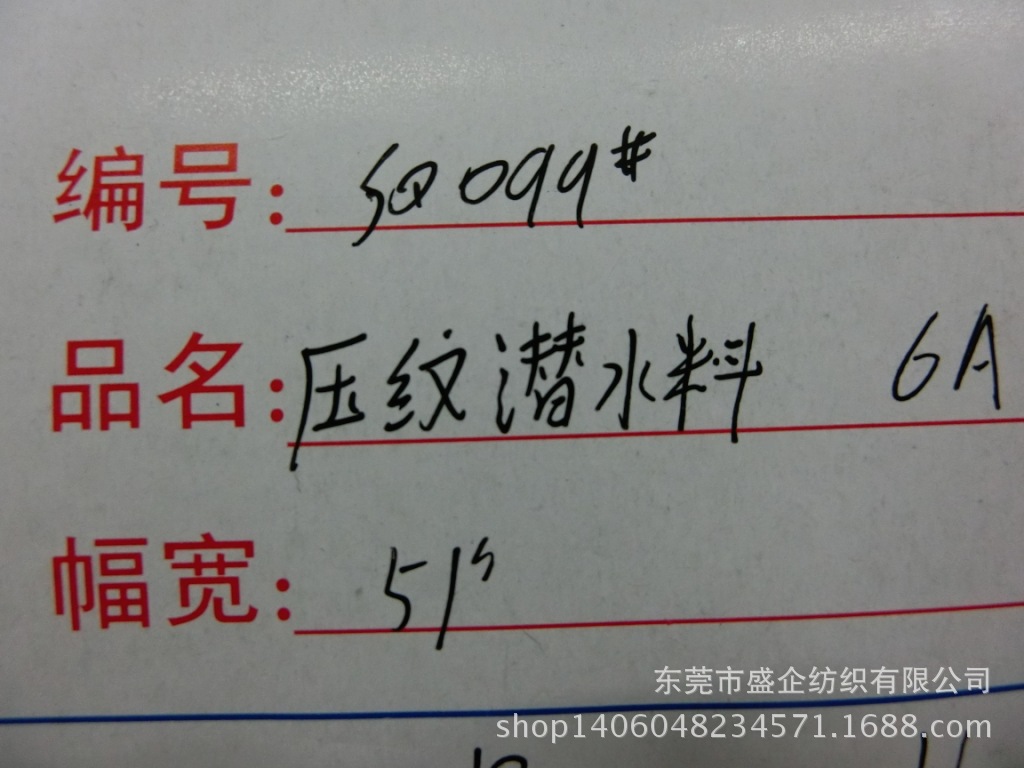 编号: SQ099#
品名: 压纹潜水料 6A
幅宽: 51"
东莞市盛企纺织有限公司
shop1406048234571.1688.com